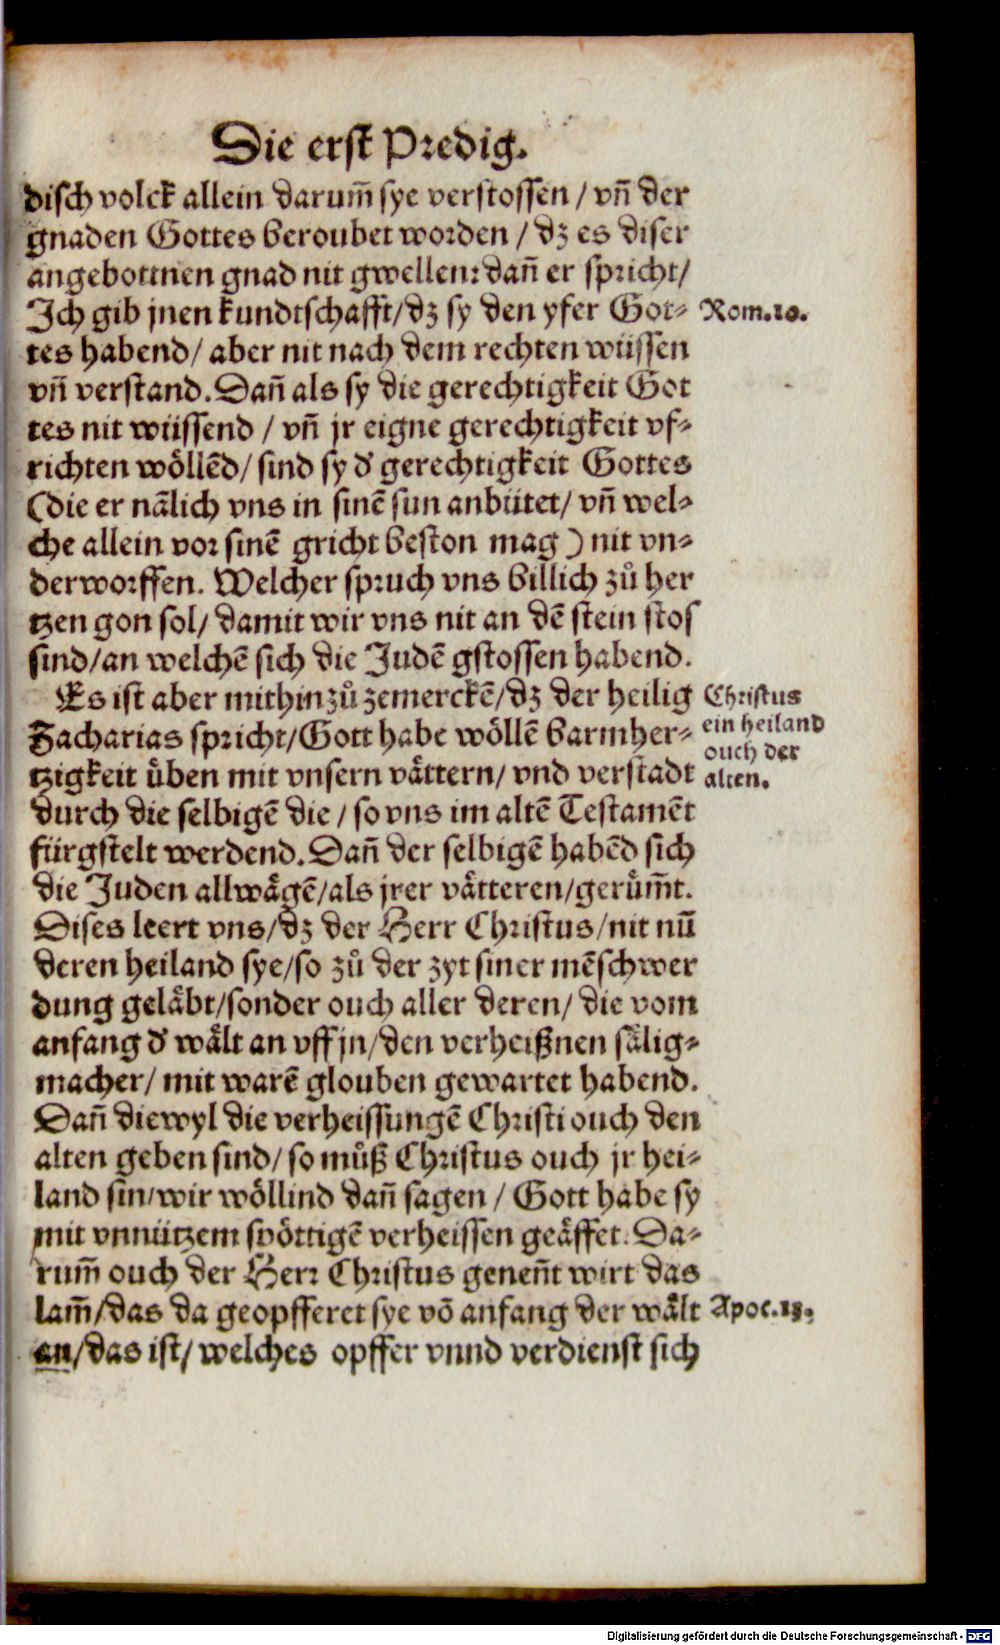 Die erst Predig.
disch volck allein darum̃ sye verstossen / vñ der
gnaden Gottes beroubet worden / dz es diser
angebottnen gnad nit gwellen: dañ er spricht /
Ich gib jnen kundtschafft / dz sy den yfer Got-
Rom.10.
tes habend / aber nit nach dem rechten wüssen
vñ verstand. Dañ als sy die gerechtigkeit Got
tes nit wüssend / vñ jr eigne gerechtigkeit vf-
richten wöllẽd / sind sy d' gerechtigkeit Gottes
(die er nãlich vns in sinẽ sun anbütet / vñ wel-
che allein vor sinẽ gricht beston mag) nit vn-
derworffen. Welcher spruch vns billich zů her
tzen gon sol / damit wir vns nit an dẽ stein stos
sind / an welchẽ sich die Judẽ gstossen habend.
Es ist aber mithinzů zemerckẽ / dz der heilig
Zacharias spricht / Gott habe wöllẽ barmher-
tzigkeit üben mit vnsern vättern / vnd verstadt
Christus
ein heiland
ouch der
alten.
durch die selbigẽ die / so vns im altẽ Testamẽt
fürgstelt werdend. Dañ der selbigẽ habẽd sich
die Juden allwägẽ / als jrer vätteren / gerům̃t.
Dises leert vns / dz der Herr Christus / nit nũ
deren heiland sye / so zů der zyt siner mẽschwer
dung geläbt / sonder ouch aller deren / die vom
anfang d' wält an vff jn / den verheißnen sälig-
macher / mit warẽ glouben gewartet habend.
Dañ diewyl die verheissungẽ Christi ouch den
alten geben sind / so můß Christus ouch jr hei-
land sin / wir wöllind dañ sagen / Gott habe sy
mit vnnützem spöttigẽ verheissen geäffet. Da-
rum̃ ouch der Herr Christus geneñt wirt das
lam̃ / das da geopfferet sye võ anfang der wält
Apoc.13.
an / das ist / welches opffer vnnd verdienst sich
Digitalisierung gefördert durch die Deutsche Forschungsgemeinschaft - DFG